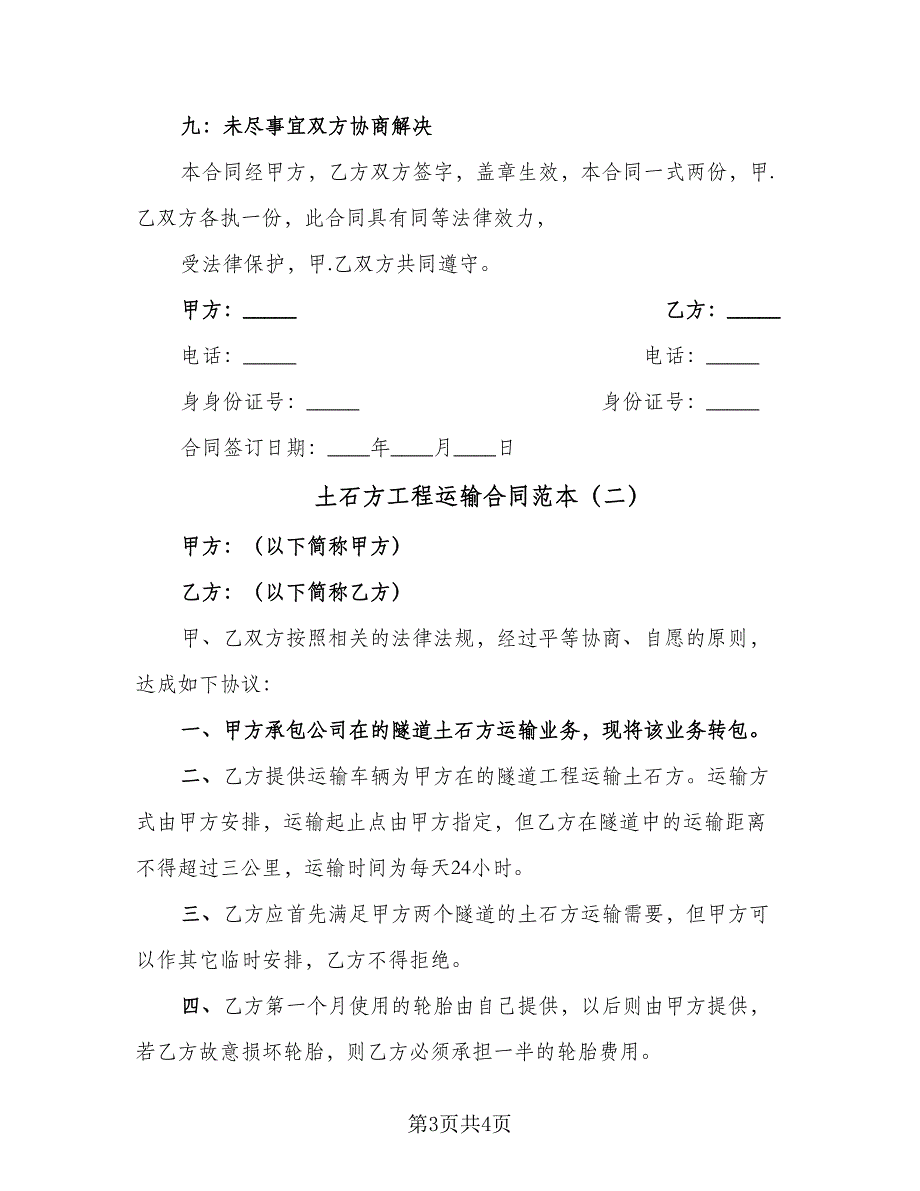 九：未尽事宜双方协商解决
本合同经甲方，乙方双方签字，盖章生效，本合同一式两份，甲.
乙双方各执一份，此合同具有同等法律效力，
受法律保护，甲.乙双方共同遵守。
甲方：_____ 乙方：_____
电话：_____ 电话：_____
身身份证号：_____ 身份证号：_____
合同签订日期：____年____月____日
土石方工程运输合同范本（二）
甲方：（以下简称甲方）
乙方：（以下简称乙方）
甲、乙双方按照相关的法律法规，经过平等协商、自愿的原则，
达成如下协议：
一、甲方承包公司在的隧道土石方运输业务，现将该业务转包。
二、乙方提供运输车辆为甲方在的隧道工程运输土石方。运输方
式由甲方安排，运输起止点由甲方指定，但乙方在隧道中的运输距离
不得超过三公里，运输时间为每天24小时。
三、乙方应首先满足甲方两个隧道的土石方运输需要，但甲方可
以作其它临时安排，乙方不得拒绝。
四、乙方第一个月使用的轮胎由自己提供，以后则由甲方提供，
若乙方故意损坏轮胎，则乙方必须承担一半的轮胎费用。
第3页共4页